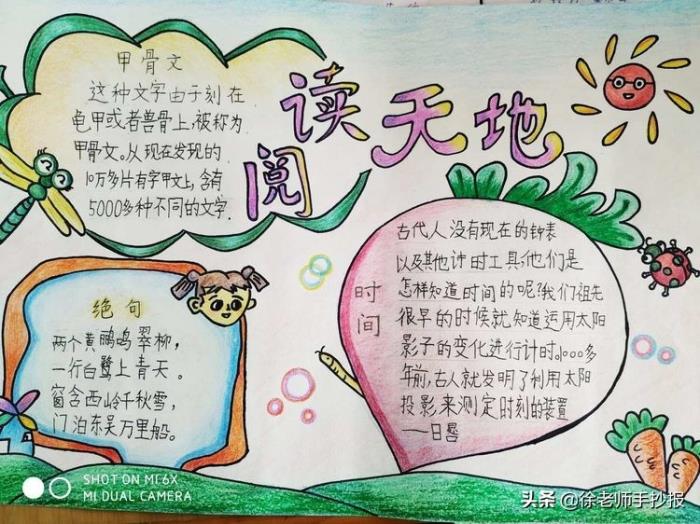 阅读天地
甲骨文
这种文字由于刻在
龟甲或者兽骨上,被称为
甲骨文。从现在发现的
10万多片有字甲文上,含有
5000多种不同的文字.
绝句
两个黄鹂鸣翠柳,
一行白鹭上青天。
窗含西岭千秋雪,
门泊东吴万里船。
时间
古代人没有现在的钟表
以及其他计时工具,他们是
怎样知道时间的呢?我们祖先
很早的时候就知道运用太阳
影子的变化进行计时。1000多
年前,古人就发明了利用太阳
投影来测定时刻的装置
—日晷
SHOT ON MI 6X
MI DUAL CAMERA
头条 @徐老师手抄报